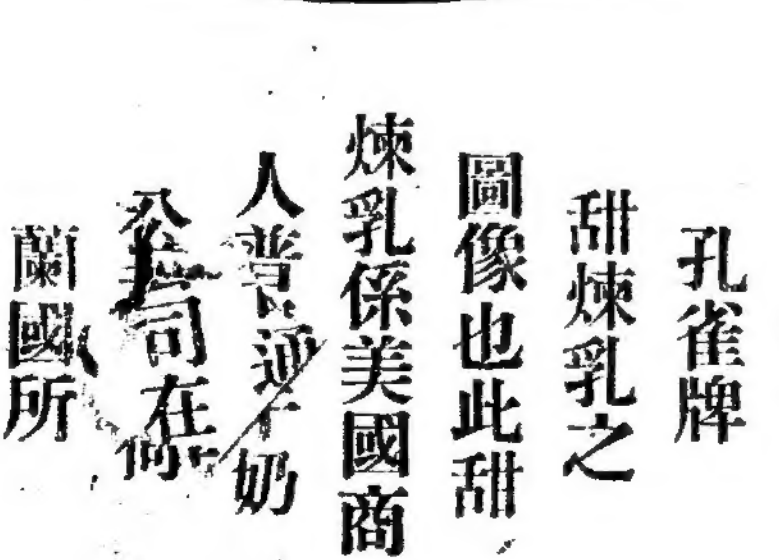 孔雀牌
甜煉乳之
圖像也此甜
煉乳係美國商
人普通牛奶
公司在何
蘭國所